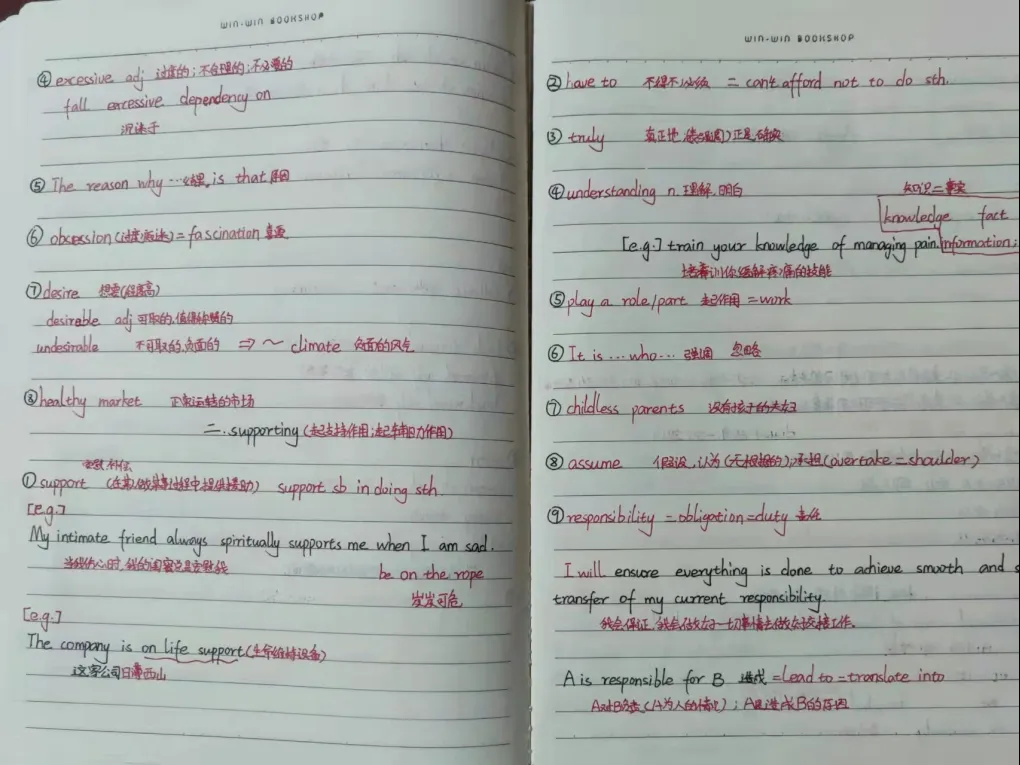 WIN-WIN BOOKSHOP
④ excessive adj 过度的;不合理的;不必要的
fall excessive dependency on
沉迷于
⑤ The reason why …结果 is that 原因
⑥ obcession(过度痴迷)=fascination 喜爱
⑦ desire 想要(程度高)
desirable adj 可取的,值得称赞的
undesirable 不可取的,负面的 ⇒ ~ climate 负面的风气
⑧ healthy market 正常运转的市场
二. supporting (起支持作用;起辅助作用)
安慰,补偿
① support (在某人做某事过程中提供援助) support sb in doing sth.
[e.g.]
My intimate friend always spiritually supports me when I am sad.
当我伤心时,我的闺蜜总是安慰我
be on the rope
岌岌可危
[e.g.]
The company is on life support(生命维持设备)
这家公司日薄西山
WIN-WIN BOOKSHOP
② have to 不得不,必须 = can't afford not to do sth.
③ truly 真正地,(表强调)正是,确实
④ understanding n. 理解,明白
知识=事实
knowledge fact
[e.g.] train your knowledge of managing pain. information;
培养训你缓解疼痛的技能
⑤ play a role/part 起作用 =work
⑥ It is … who … 强调 忽略
⑦ childless parents 没有孩子的夫妇
⑧ assume 假设,认为(无根据的);承担(overtake=shoulder)
⑨ responsibility =obligation=duty 责任
I will ensure everything is done to achieve smooth and s
transfer of my current responsibility.
我会保证,我会做好一切事情去做好交接工作.
A is responsible for B 造成 =lead to =translate into
A对B负责(A为人的情况);A是造成B的原因